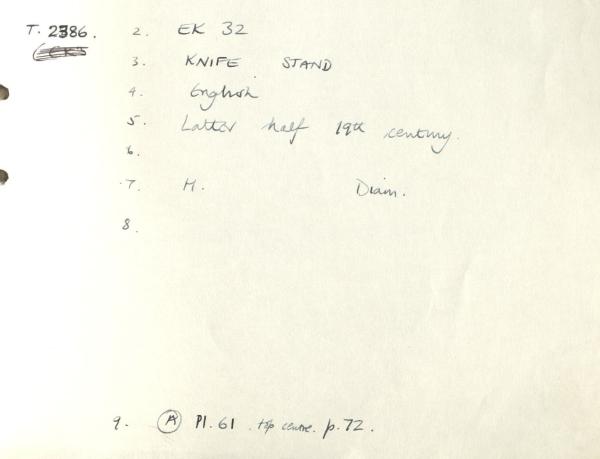 T. 2386. 2. EK 32
3. KNIFE STAND
4. English
5. Latter half 19th century.
6.
7. H. Diam.
8.
9. (A) Pl. 61 top centre. p. 72.